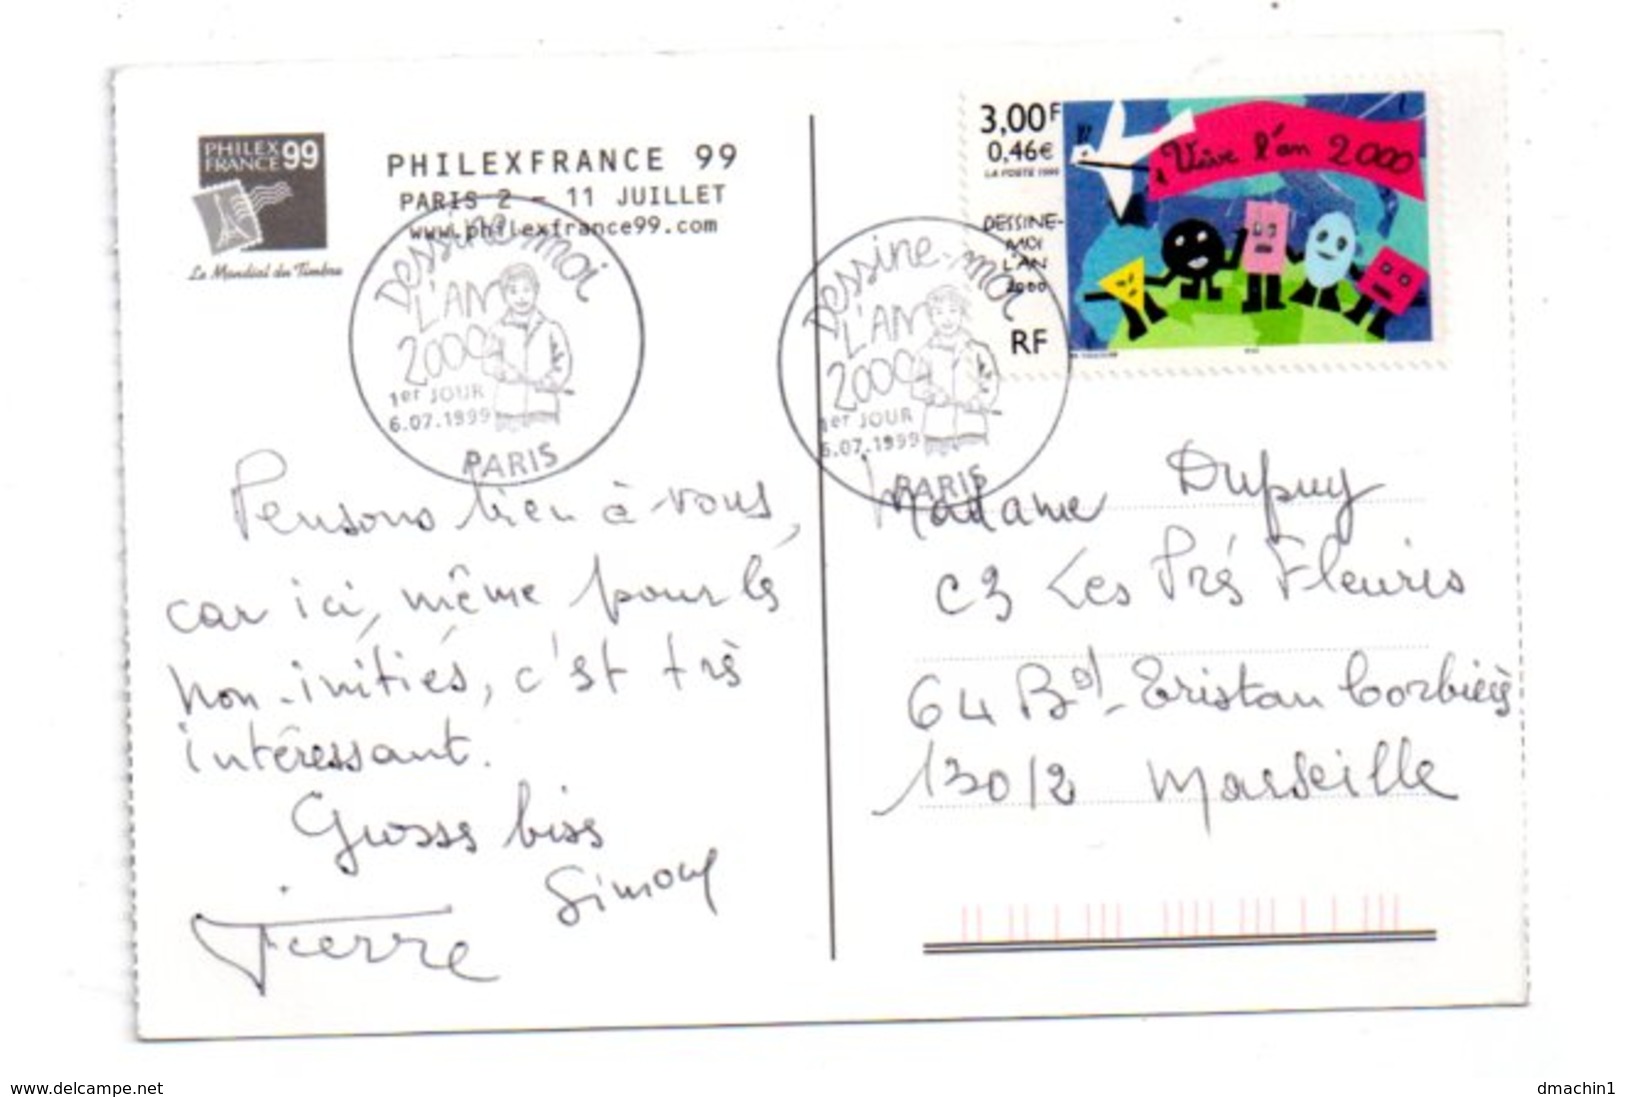 PHILEX
FRANCE 99
Le Mondial du Timbre
PHILEXFRANCE 99
PARIS 2 - 11 JUILLET
www.philexfrance99.com
Dessine-moi
L'AN
2000
1er JOUR
6.07.1999
PARIS
Dessine-moi
L'AN
2000
1er JOUR
6.07.1999
PARIS
3,00F
0,46€
LA POSTE 1999
DESSINE-
MOI
L'AN
2000
RF
Vive l'an 2000
Pensons bien à vous,
car ici, même pour les
non-initiés, c'est très
intéressant.
Grosses bises
Simone
Pierre
Madame Dupuy
C3 Les Prés Fleuris
64 Bd Tristan Corbière
13012 Marseille
www.delcampe.net
dmachin1